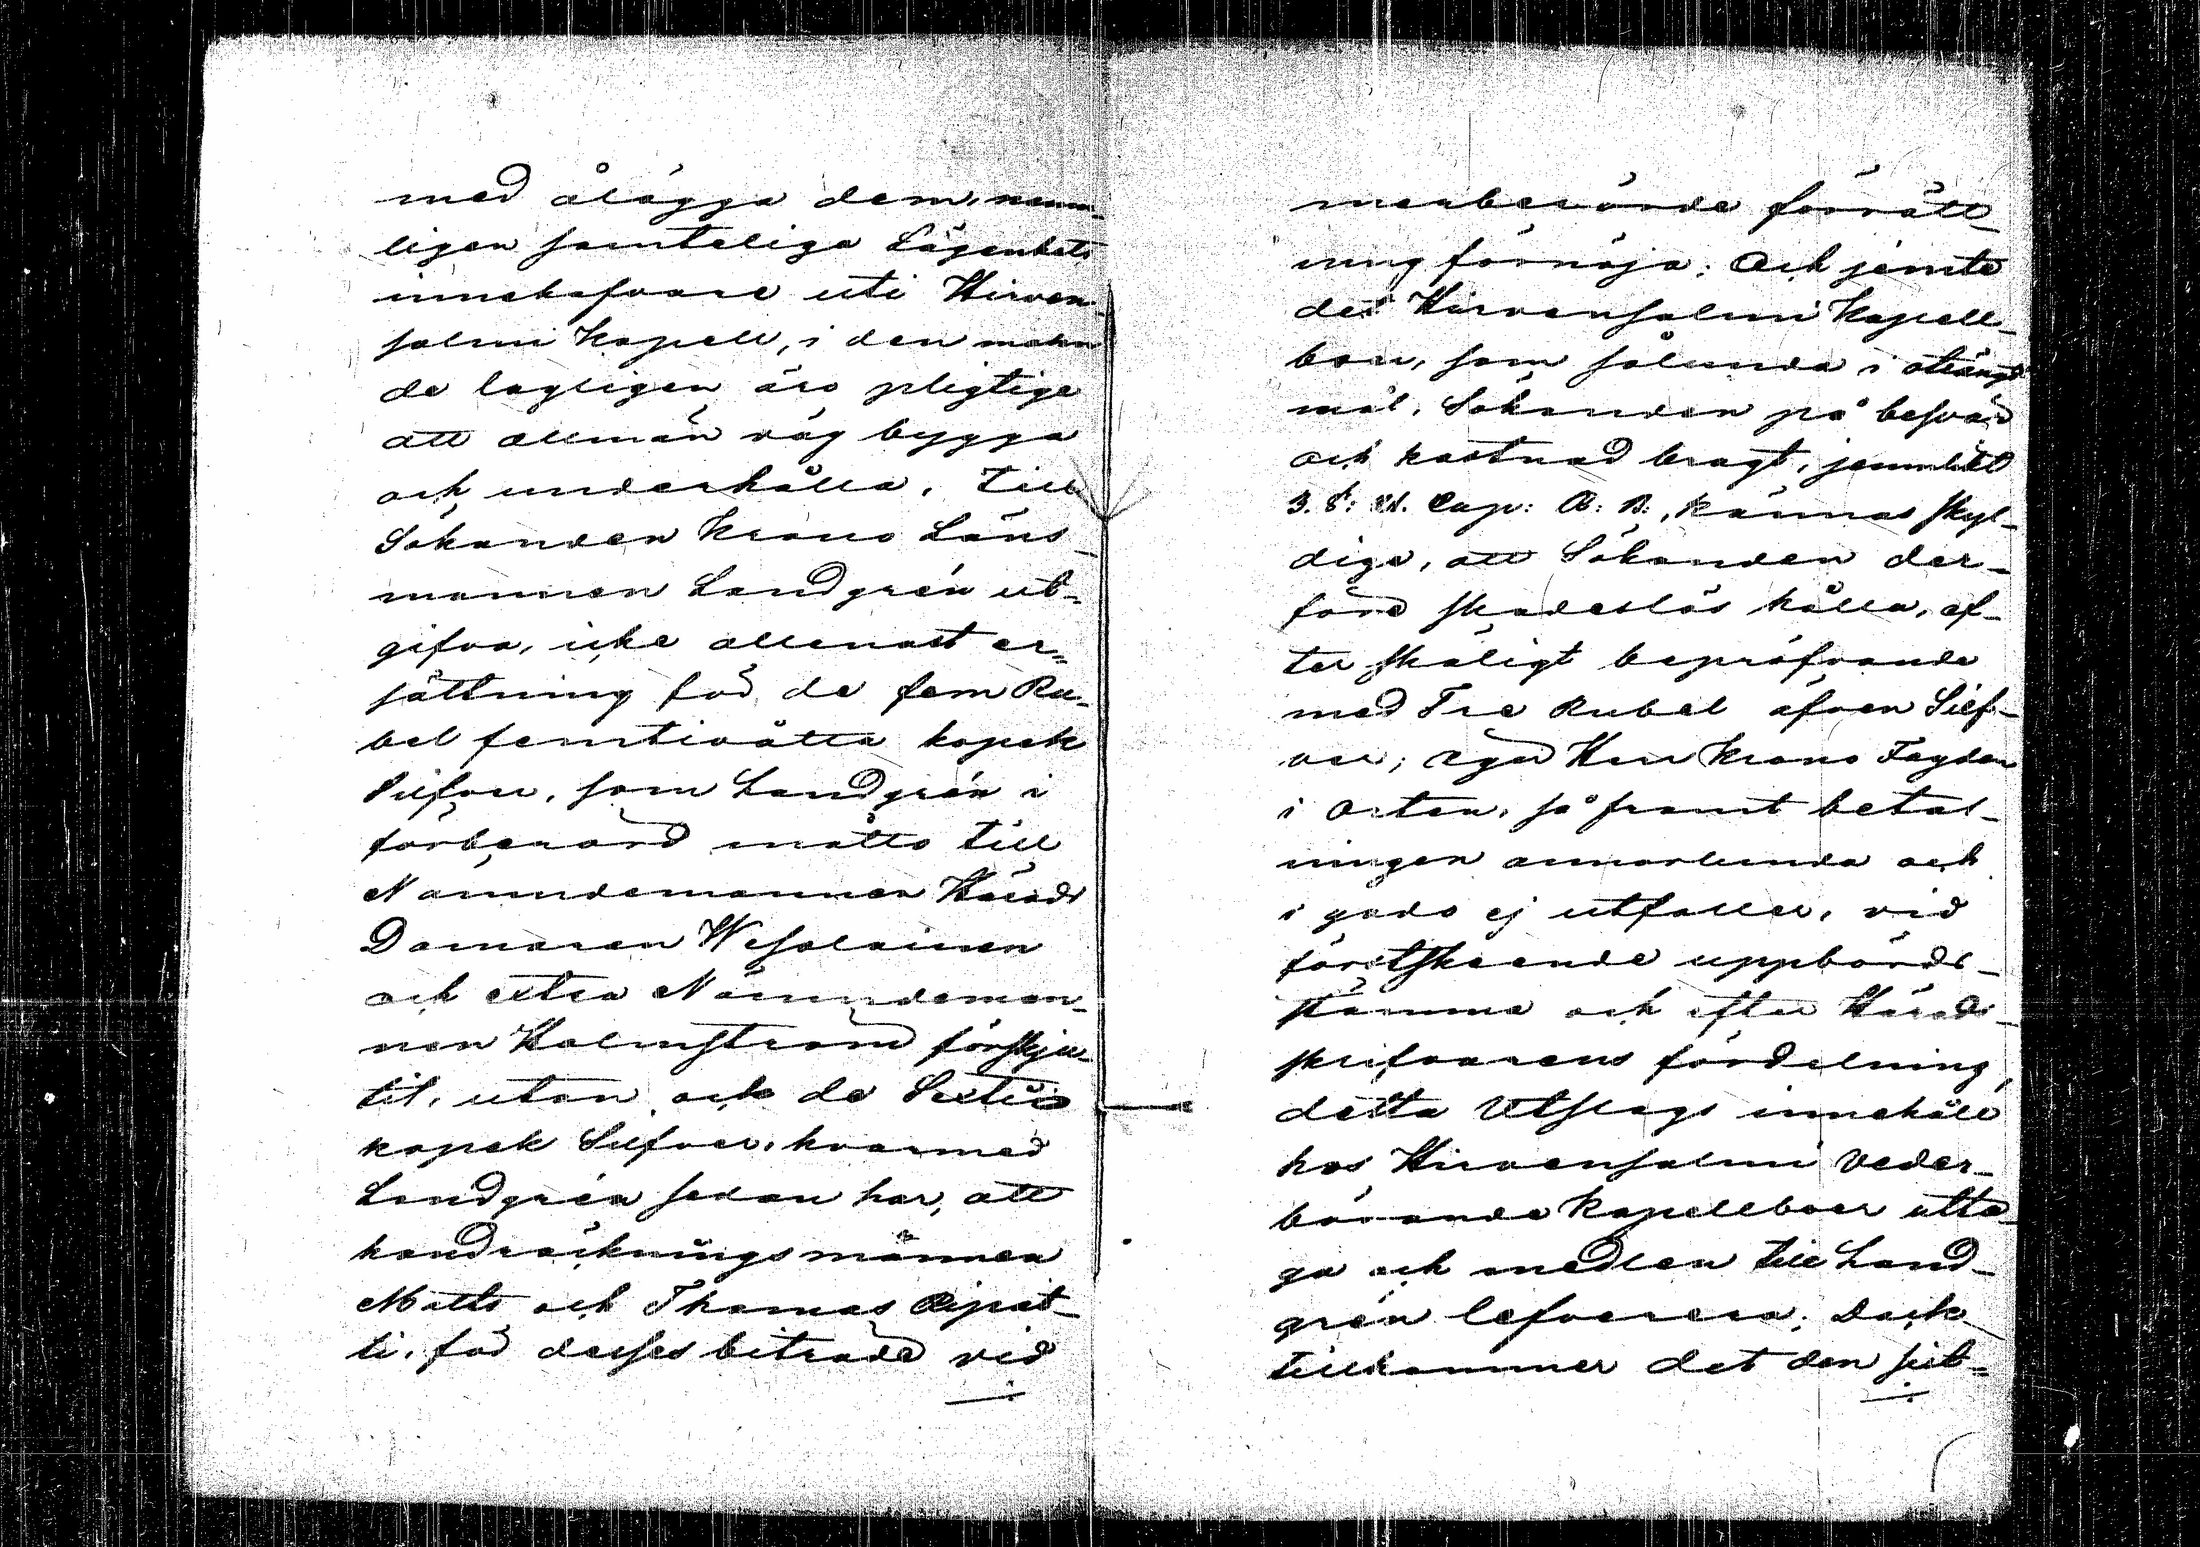 med ålägga dem, nemm-
ligen samteliga Lägenhets
innehafvare uti Hirven-
salmi Kapell, i den mohn
de lagligen äro pligtige
att allmän väg bygga
och underhålla, till
Sökanden Krono Läns-
mannen Landgrén ut-
gifva, icke allenast er-
sättning för de fem Ru-
bel femtioåtta kopek
Silfver, som Landgrén i
förberörd måtto till
Nämndemannen Härads
Domaren Wesalainen
och extra Nämndeman-
nen Holmström förskju-
tit, utan ock de Sextio
kopek Silfver, hvarmed
Landgrén sedan har, att
handräckningsmännen
Matts och Thomas Ripat-
ti, för desses biträde vid
merberörde förrätt-
ning förnöja; Och jemte
det Hirvensalmi Kapell-
boer, som sålunda i oträngdt
mål, Sökanden på besvär
och kostnad bragt, jemlikt
3. §: 21. Cap: R: B:, kännas skyl-
dige, att Sökanden der-
före skadeslös hålla, ef-
ter skäligt bepröfvande
med Tre Rubel äfven Silf-
ver; eger Herr Krono Fogden
i Orten, så framt betal-
ningen annorlunda och
i godo ej utfaller, vid
förstskeende uppbörds-
stämma och efter Härads-
skrifvarens fördelning,
detta Utslags innehåll
hos Hirvensalmi Veder-
börande Kapellboer utta-
ga och medlen till Land-
grén lefverera; Dock
tillkommer det den sist-